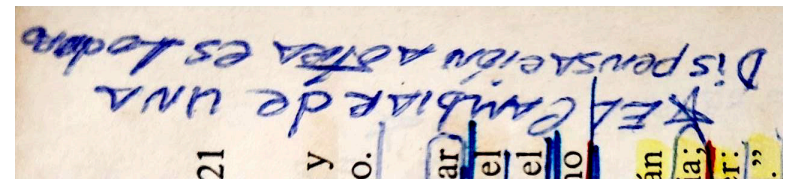 EL CAMBIAR de UNA
Dispensación A OTRA es
21
y
o.
ar
el
el
no
án
ia;
er:
.”